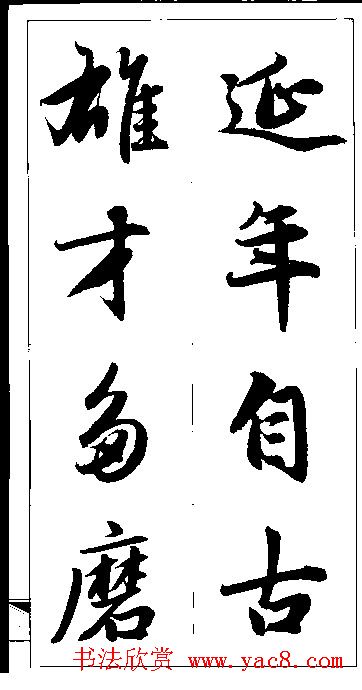 延年自古
雄才多磨
书法欣赏 www.yac8.com